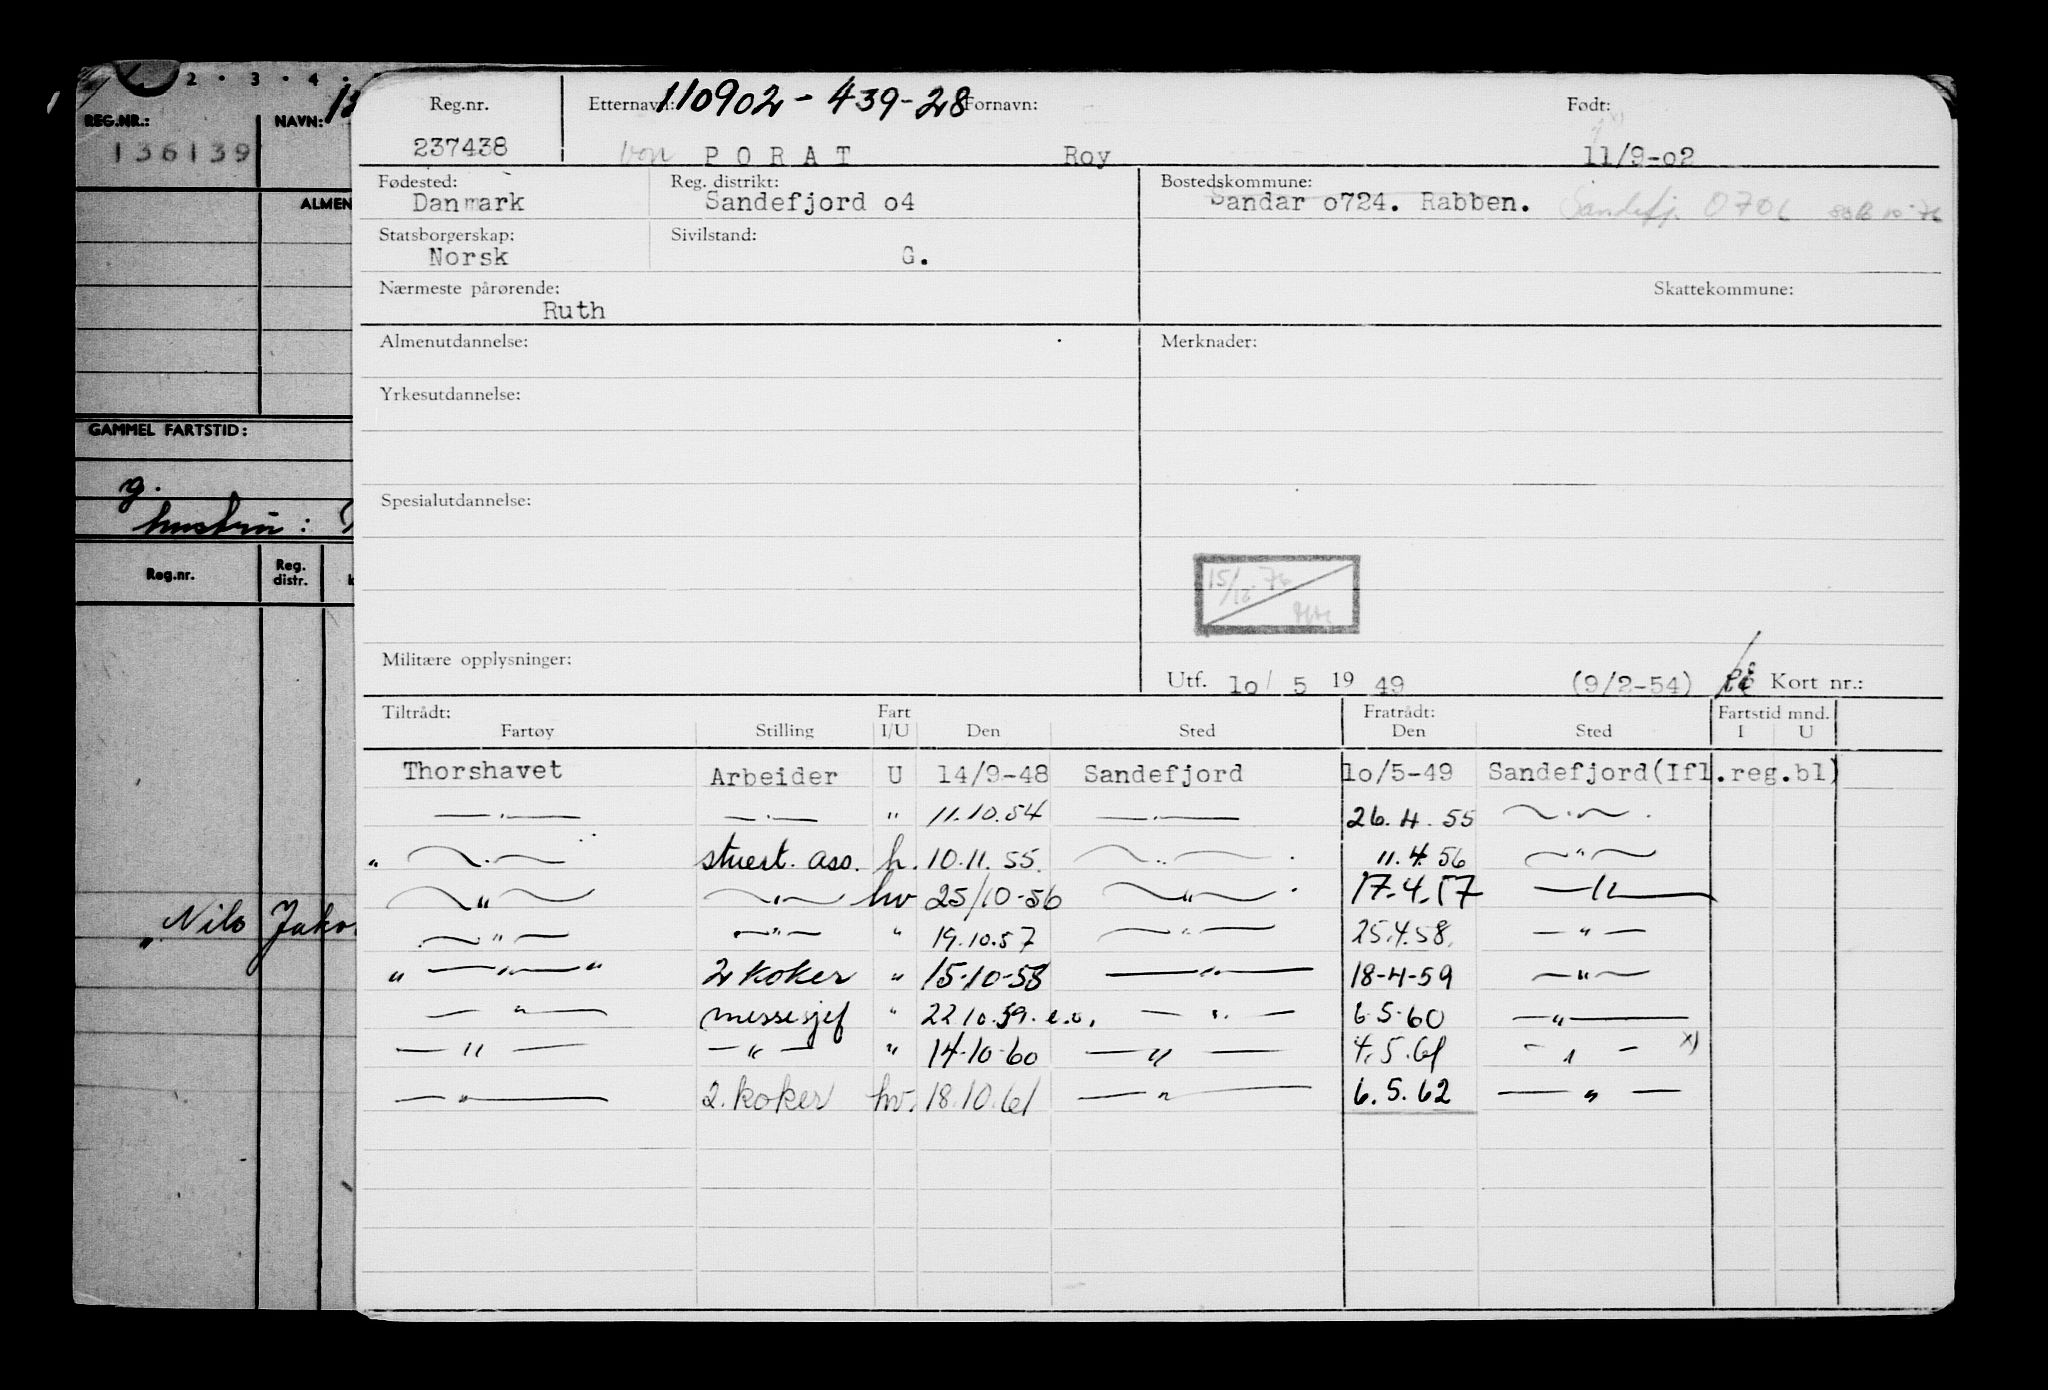 2 · 3 · 4 ·
REG.NR.: NAVN:
136139
ALMEN
GAMMEL FARTSTID:
g.
hustru:
Reg.nr. Reg. distr.
" Nils Jako
Reg.nr. Etternavn: 110902-439-28 Fornavn: Født:
237438 von PORAT Roy 11/9-o2
Fødested: Reg. distrikt: Bostedskommune:
Danmark Sandefjord o4 Sandar o724. Rabben. Sandefj. 0706
Statsborgerskap: Sivilstand:
Norsk G.
Nærmeste pårørende: Skattekommune:
Ruth
Almenutdannelse: Merknader:
Yrkesutdannelse:
Spesialutdannelse:
15/10-76
Militære opplysninger:
Utf. 1o/ 5 19 49 (9/2-54) Kort nr.:
Tiltrådt: Fart Fratrådt: Fartstid mnd.
Fartøy Stilling I/U Den Sted Den Sted I U
Thorshavet Arbeider U 14/9-48 Sandefjord 1o/5-49 Sandefjord(Ifl.reg.bl)
—"— —"— " 11.10.54 —"— 26.4.55 —"—
" —"— stuert. ass. h. 10.11.55. —"— 11.4.56 —"—
—"— —"— hv 25/10-56 —"— 17.4.57 —"—
—"— —"— " 19.10.57 —"— 25.4.58. —"—
" —"— " 2 koker " 15-10-58 —"— 18-4-59 —"—
—"— messesjef " 22.10.59. e.o. —"— 6.5.60 —"—
—"— —"— " 14-10-60 —"— 4.5.61 —"— x)
—"— 2. koker hv. 18.10.61 —"— 6.5.62 —"—